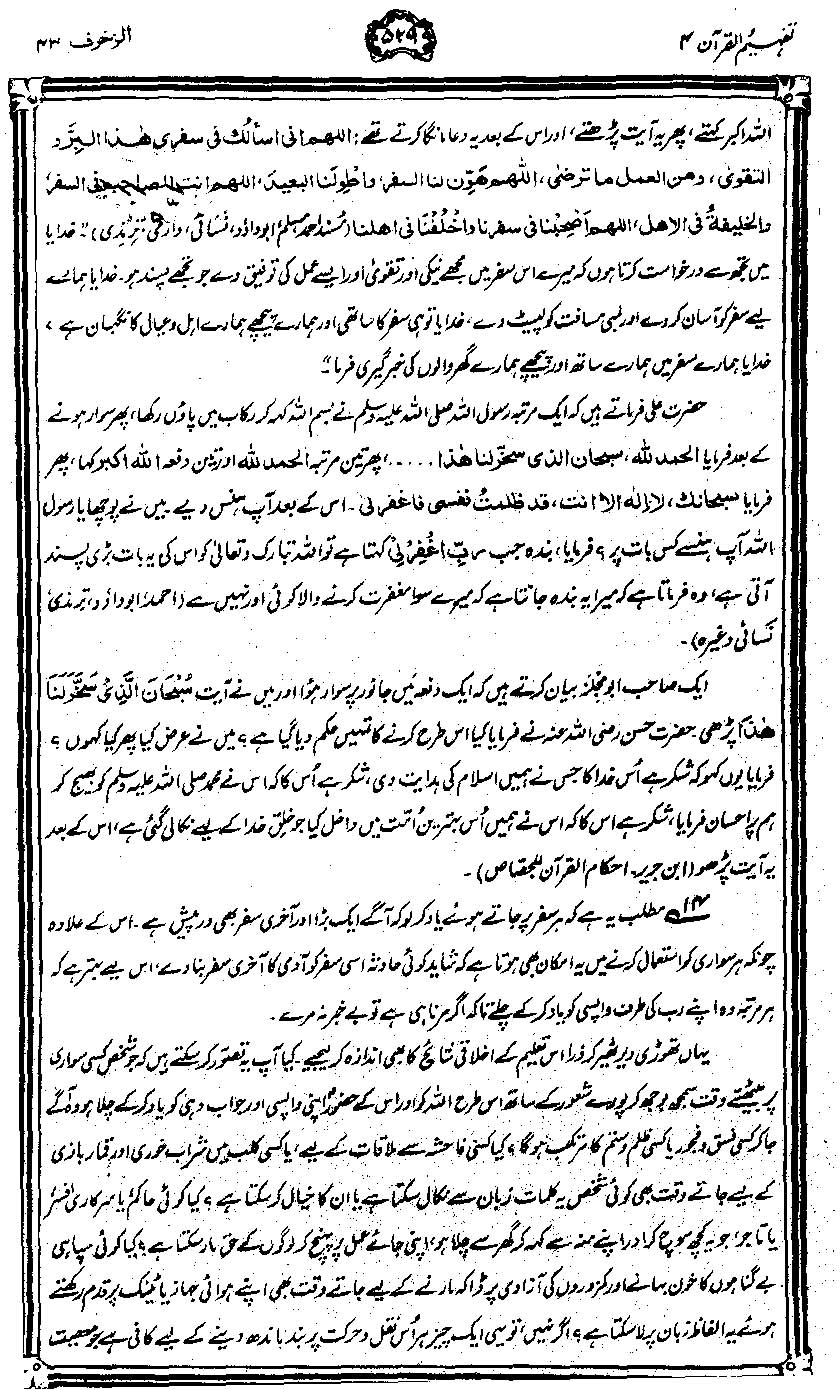 تفہیم القرآن ۴
۵۲۹
الزخرف ۴۳
اللہ اکبر کہتے، پھر یہ آیت پڑھتے، اور اس کے بعد یہ دعا مانگا کرتے تھے: اللھم انی اسألك فی سفری ھٰذا البرَّ و
التقویٰ، ومن العمل ما ترضیٰ، اللھم ھَوِّن لنا السفر، واطْوِلنا البعید، اللھم انت الصاحب فی السفر،
والخلیفةُ فی الاھل، اللھم اَصْحِبْنا فی سفرنا واخْلُفْنا فی اھلنا (مُسند احمد، مسلم، ابوداؤد، نسائی، دارمی، ترمذی) ”خدایا
میں تجھ سے درخواست کرتا ہوں کہ میرے اس سفر میں مجھے نیکی اور تقویٰ اور ایسے عمل کی توفیق دے جو تجھے پسند ہو۔ خدایا ہمارے
لیے سفر کو آسان کردے اور لمبی مسافت کو لپیٹ دے، خدایا تو ہی سفر کا ساتھی اور ہمارے پیچھے ہمارے اہل و عیال کا نگہبان ہے،
خدایا ہمارے سفر میں ہمارے ساتھ اور پیچھے ہمارے گھر والوں کی خبر گیری فرما“
حضرت علی فرماتے ہیں کہ ایک مرتبہ رسول اللہ صلی اللہ علیہ وسلم نے بسم اللہ کہہ کر رکاب میں پاؤں رکھا، پھر سوار ہونے
کے بعد فرمایا الحمد للہ، سبحان الذی سخّر لنا ھٰذا .....، پھر تین مرتبہ الحمد للہ اور تین دفعہ اللہ اکبر کہا، پھر
فرمایا سبحانك، لا اِلٰہ الا انت، قد ظلمتُ نفسی فاغفرلی۔ اس کے بعد آپ ہنس دیے۔ میں نے پوچھا یا رسول
اللہ آپ ہنسے کس بات پر؟ فرمایا، بندہ جب ربِّ اغْفِرْلِیْ کہتا ہے تو اللہ تبارک وتعالیٰ کو اس کی یہ بات بڑی پسند
آتی ہے، وہ فرماتا ہے کہ میرا یہ بندہ جانتا ہے کہ میرے سوا مغفرت کرنے والا کوئی اور نہیں ہے (احمد، ابوداؤد، ترمذی،
نسائی وغیرہ)۔
ایک صاحب ابو مجلز بیان کرتے ہیں کہ ایک دفعہ میں جانور پر سوار ہؤا اور میں نے آیت سُبْحَانَ الَّذِیْ سَخَّرَلَنَا
ھٰذَا پڑھی۔ حضرت حسن رضی اللہ عنہ نے فرمایا کیا اس طرح کرنے کا تمہیں حکم دیا گیا ہے؟ میں نے عرض کیا پھر کیا کہوں؟
فرمایا یوں کہو کہ شکر ہے اُس خدا کا جس نے ہمیں اسلام کی ہدایت دی، شکر ہے اُس کا کہ اس نے محمد صلی اللہ علیہ وسلم کو بھیج کر
ہم پر احسان فرمایا، شکر ہے اس کا کہ اس نے ہمیں اُس بہترین اُمت میں داخل کیا جو خلقِ خدا کے لیے نکالی گئی ہے، اس کے بعد
یہ آیت پڑھو (ابن جریر۔ احکام القرآن للجصاص)۔
۱۴ مطلب یہ ہے کہ ہر سفر پر جاتے ہوئے یاد کر لو کہ آگے ایک بڑا اور آخری سفر بھی درپیش ہے۔ اس کے علاوہ
چونکہ ہر سواری کو استعمال کرنے میں یہ امکان بھی ہوتا ہے کہ شاید کوئی حادثہ اسی سفر کو آدمی کا آخری سفر بنا دے، اس لیے بہتر ہے کہ
ہر مرتبہ وہ اپنے رب کی طرف واپسی کو یاد کر کے چلے تاکہ اگر مرنا ہی ہے تو بے خبر نہ مرے۔
یہاں تھوڑی دیر ٹھیر کر ذرا اس تعلیم کے اخلاقی نتائج کا بھی اندازہ کر لیجیے۔ کیا آپ یہ تصوّر کر سکتے ہیں کہ جو شخص کسی سواری
پر بیٹھتے وقت سمجھ بوجھ کر پورے شعور کے ساتھ اس طرح اللہ کو اور اس کے حضور اپنی واپسی اور جواب دہی کو یاد کر کے چلا ہو وہ آگے
جا کر کسی فسق و فجور یا کسی ظلم و ستم کا مرتکب ہوگا؟ کیا کسی فاحشہ سے ملاقات کے لیے، یا کسی کلب میں شراب خوری اور قمار بازی
کے لیے جاتے وقت بھی کوئی شخص یہ کلمات زبان سے نکال سکتا ہے یا ان کا خیال کر سکتا ہے؟ کیا کوئی حاکم، یا سرکاری افسر،
یا تاجر، جو یہ کچھ سوچ کر اور اپنے منہ سے کہہ کر گھر سے چلا ہو، اپنی جائے عمل پر پہنچ کر لوگوں کے حق مار سکتا ہے؟ کیا کوئی سپاہی
بے گناہوں کا خون بہانے اور کمزوروں کی آزادی پر ڈاکہ مارنے کے لیے جاتے وقت بھی اپنے ہوائی جہاز یا ٹینک پر قدم رکھتے
ہوئے یہ الفاظ زبان پر لا سکتا ہے؟ اگر نہیں، تو یہی ایک چیز ہر اُس نقل و حرکت پر بند باندھ دینے کے لیے کافی ہے جو معصیت